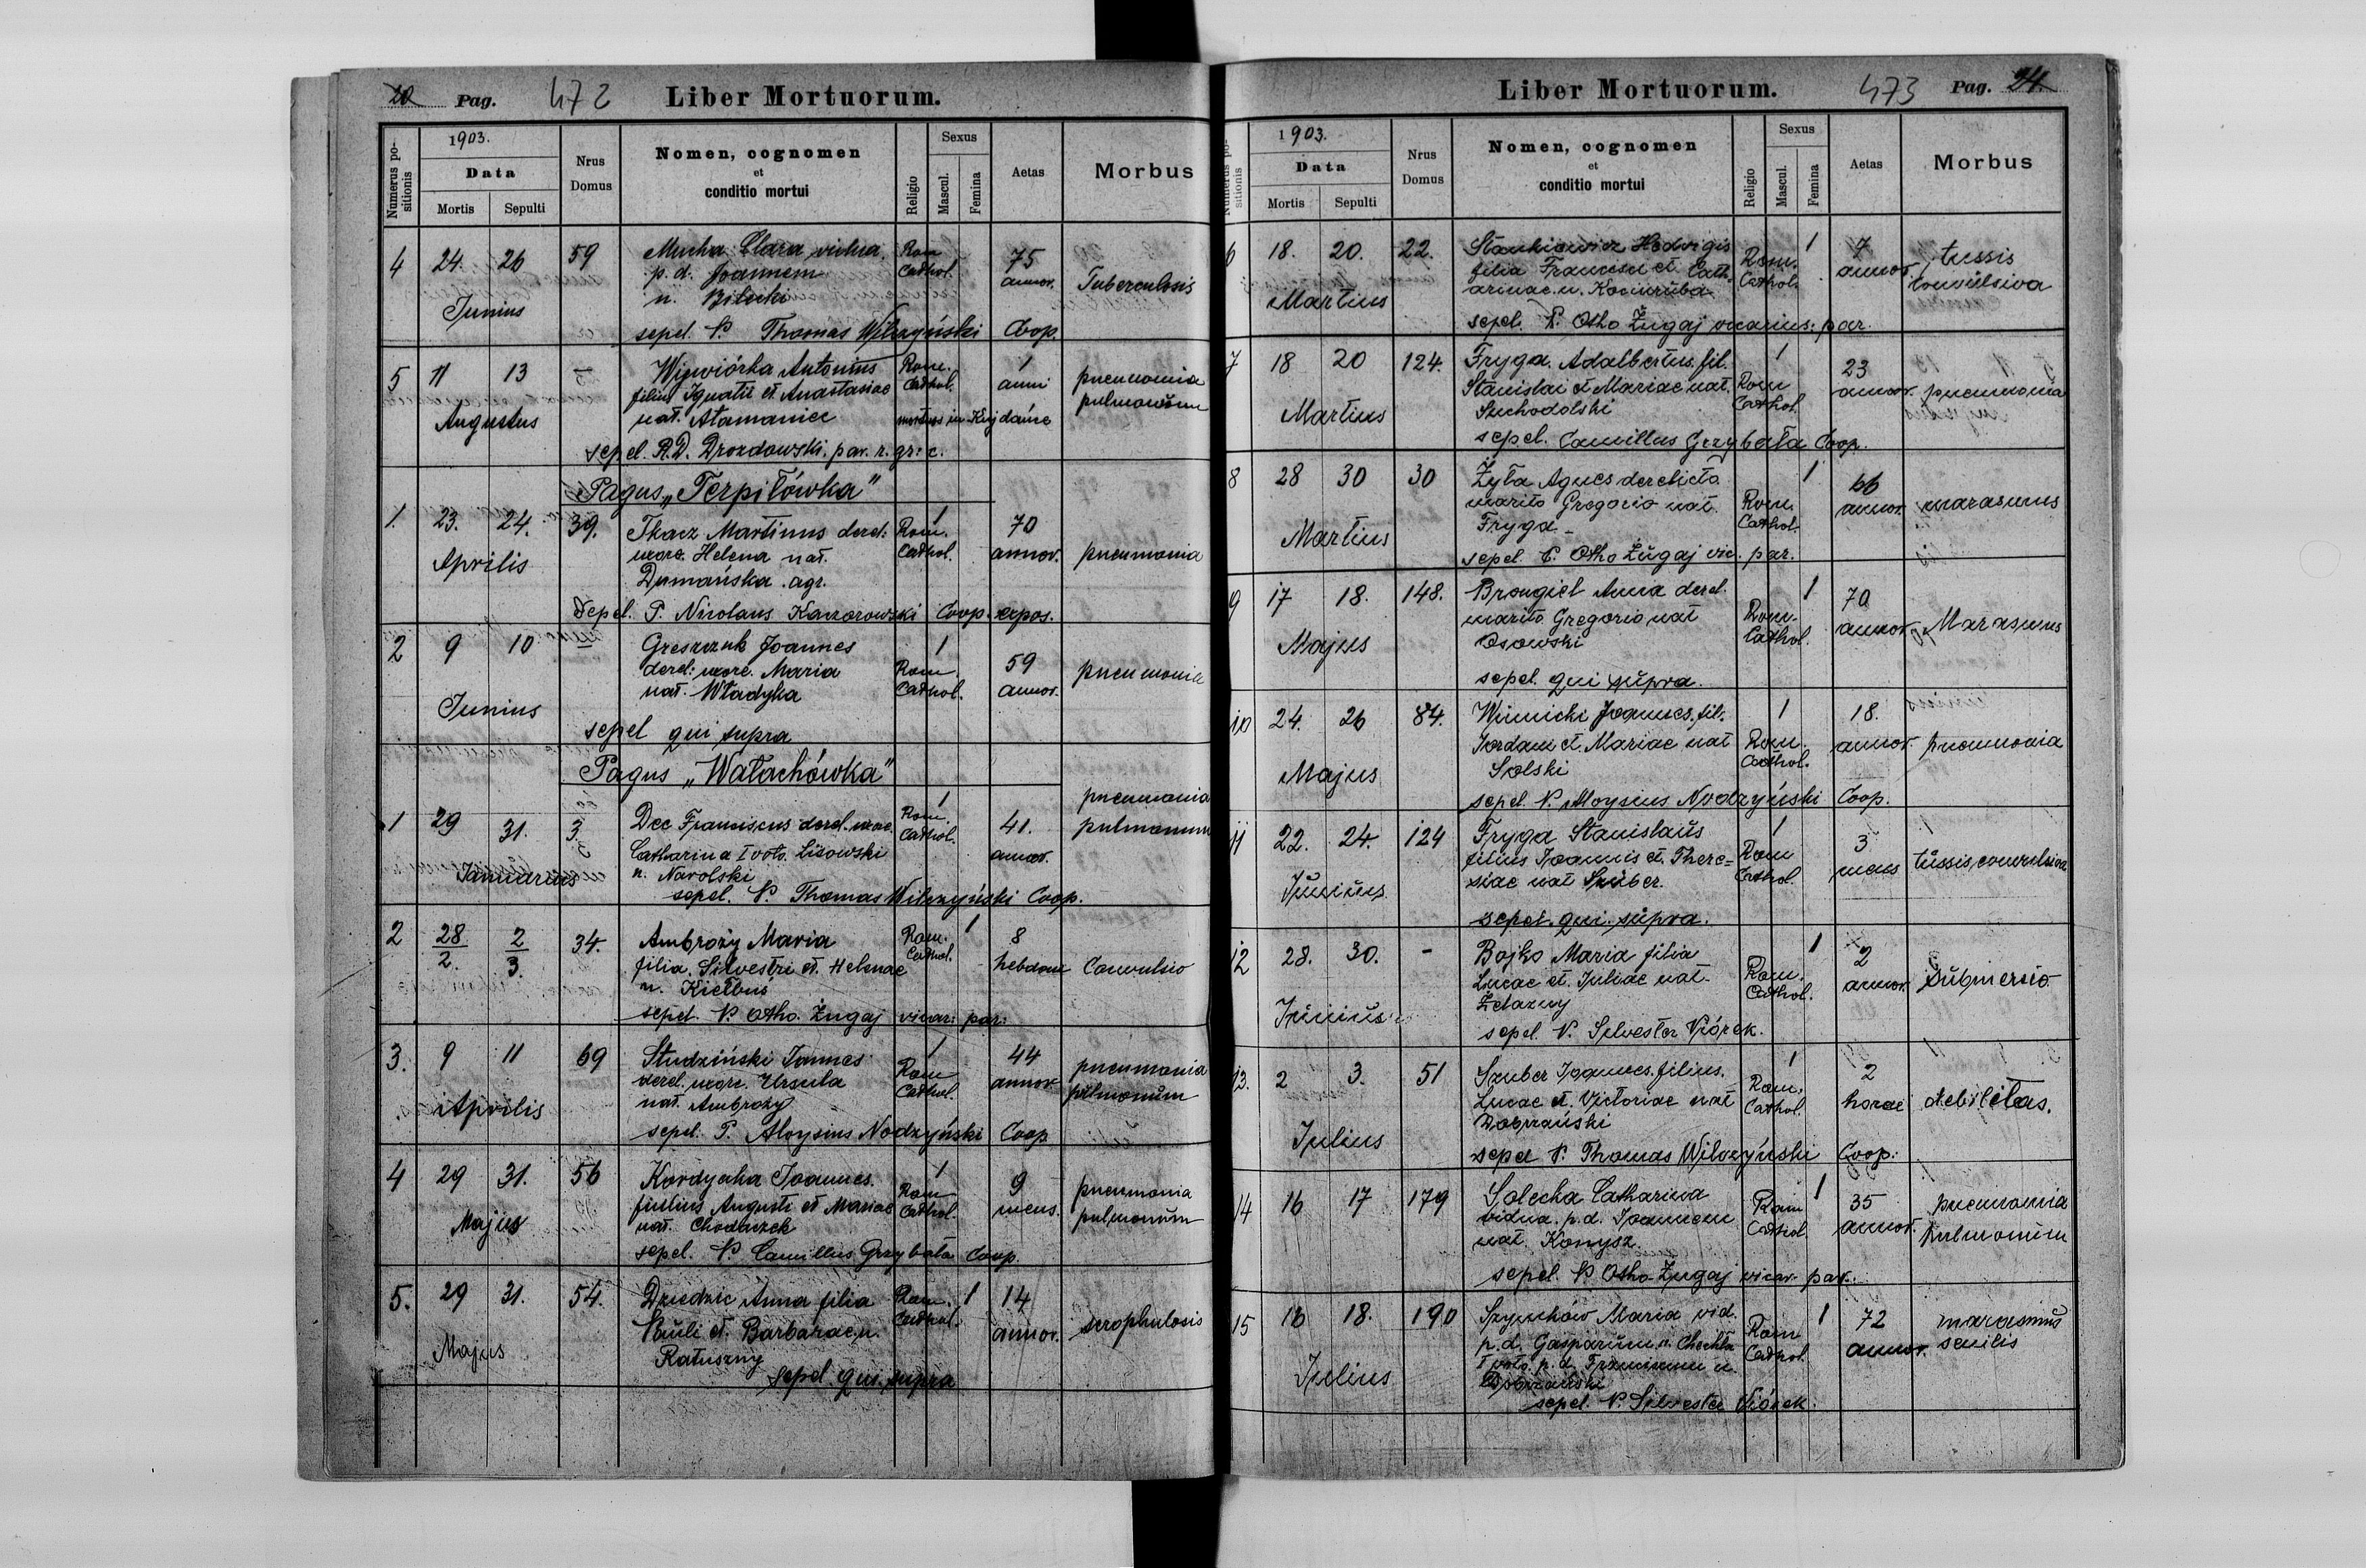 20 Pag. 472 Liber Mortuorum.
Numerus positionis
1903.
Data
Mortis Sepulti
Nrus Domus
Nomen, cognomen
et
conditio mortui
Religio
Sexus
Mascul. Femina
Aetas
Morbus
4 24. 26 59 Mucha Clara vidua Rom. Cathol. 75 annor. Tuberculosis
p. d. Joannem
n. Bilecki
Junius
sepel. P. Thomas Wilczyński Coop.
5 11 13 Wiewiórka Antonius Rom. Cathol. 1 anni pneumonia pulmonum
filius Ignatii et Anastasiae
nat. Atamaniec mortuus in Kujdańce
Augustus
sepel. R.D. Drozdowski par. r. gr. c.
Pagus "Terpiłówka"
1. 23. 24. 39. Tkacz Martinus derel: Rom. Cathol. 1 70 annor. pneumonia
uxore Helena nat.
Aprilis
Dumańska agr.
Sepel. P. Nicolaus Kaczorowski Coop. expos.
2 9 10 Greszczuk Joannes Rom. Cathol. 1 59 annor. pneumonia
derel: uxore Maria
nat. Władyka
Junius
sepel qui supra
Pagus "Wałachówka"
1 29 31. 3. Dec Franciscus derel. uxore Rom. Cathol. 1 41. annor. pneumonia pulmonum
Catharina I voto Lisowski
n. Narolski
Januarius
sepel. P. Thomas Wilczyński Coop.
2 28/2. 2/3. 34. Ambroży Maria Rom. Cathol. 1 8 hebdom Convulsio
filia Silvestri et Helenae
n. Kiełbus
sepel. P. Otho Żugaj vicar: par:
3. 9 11 69 Studziński Joannes Rom. Cathol. 1 44 annor pneumonia pulmonum
derel. uxore Ursula
nat. Ambroży
Aprilis
sepel. P. Aloysius Nodzyński Coop
4 29 31. 56 Kordyaka Joannes Rom Cathol. 1 9 mens. pneumonia pulmonum
filius Augusti et Mariae
nat. Chodaczek
Majus
sepel. P. Camillus Grzybała Coop.
5. 29 31. 54. Dziedzic Anna filia Rom. Cathol. 1 14 annor. scrophulosis
Pauli et Barbarae n.
Ratuszny
Majus
sepel qui supra
Liber Mortuorum. 473 Pag. 21.
Numerus positionis
1903.
Data
Mortis Sepulti
Nrus Domus
Nomen, cognomen
et
conditio mortui
Religio
Sexus
Mascul. Femina
Aetas
Morbus
6 18. 20. 22. Stankiewicz Hedvigis Rom. Cathol. 1 7 annor. tussis convulsiva
filia Francisci et Cath
arinae n. Kociuruba
Martius
sepel. P. Otho Żugaj vicarius par.
7 18 20 124. Fryga Adalbertus fil. Rom Cathol. 1 23 annor. pneumonia
Stanislai et Mariae nat.
Suchodolski
Martius
sepel. Camillus Grzybała Coop.
8 28 30 30 Żyła Agnes derelicto Rom. Cathol. 1 66 annor marasmus
marito Gregorio nat.
Fryga
Martius
sepel. P. Otho Żugaj vic. par.
9 17 18. 148. Brongiel Anna derel. Rom. Cathol. 1 70 annor Marasmus
marito Gregorio nat
Osowski
Majus
sepel. qui supra.
10 24. 26 84. Winnicki Joannes fil. Rom. Cathol. 1 18. annor. pneumonia
Jordani et Mariae nat
Solski
Majus
sepel. P. Aloysius Nodzyński Coop.
11 22. 24. 124 Fryga Stanislaus Rom Cathol. 1 3 mens tussis convulsiva
filius Joannis et There=
siae nat Szuber.
Junius
sepel. qui supra.
12 28. 30. - Bojko Maria filia Rom. Cathol. 1 2 annor. submersio
Lucae et Juliae nat.
Żelazny
Junius
sepel. P. Silvester Piórek.
13. 2 3. 51 Szuber Joannes filius Rom. Cathol. 1 2 horae debilitas.
Lucae et Victoriae nat
Dobrzański
Julius
sepel P. Thomas Wilczyński Coop:
14 16 17 179 Solecka Catharina Rom Cathol 1 35 annor. pneumonia pulmonum
vidua p.d. Joannem
nat. Konysz
sepel. P. Otho Żugaj vicar par.
15 16 18. 190 Szynków Maria vid. Rom Cathol. 1 72 annor. marasmus senilis
p.d. Gasparum n. Chechła
I voto p.d. Franciscum n.
Dobrzański
Julius
sepel. P. Silvester Piórek.